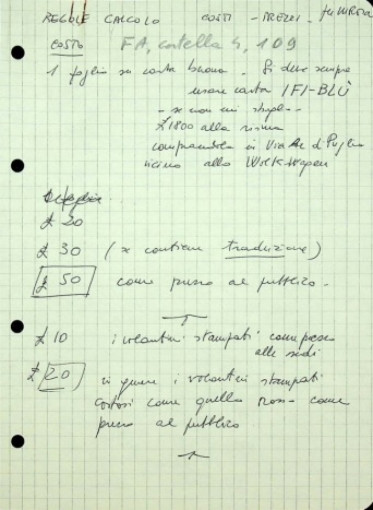 REGOLE CALCOLO COSTI - PREZZI -
COSTO FA, cartella 4, 109
1 foglio su carta buona. Si deve sempre
usare carta IFI-BLÙ
- se non mi sbaglio -
£ 1800 alla risma
comprandola in Viale d. Puglie
vicino alla Wolkswagen
£ 20
£ 30 (se contiene traduzione)
£ 50 come prezzo al pubblico.
£ 10 i volantini stampati come prezzo
alle sedi
£ 20 in genere i volantini stampati
costosi come quello rosso come
prezzo al pubblico